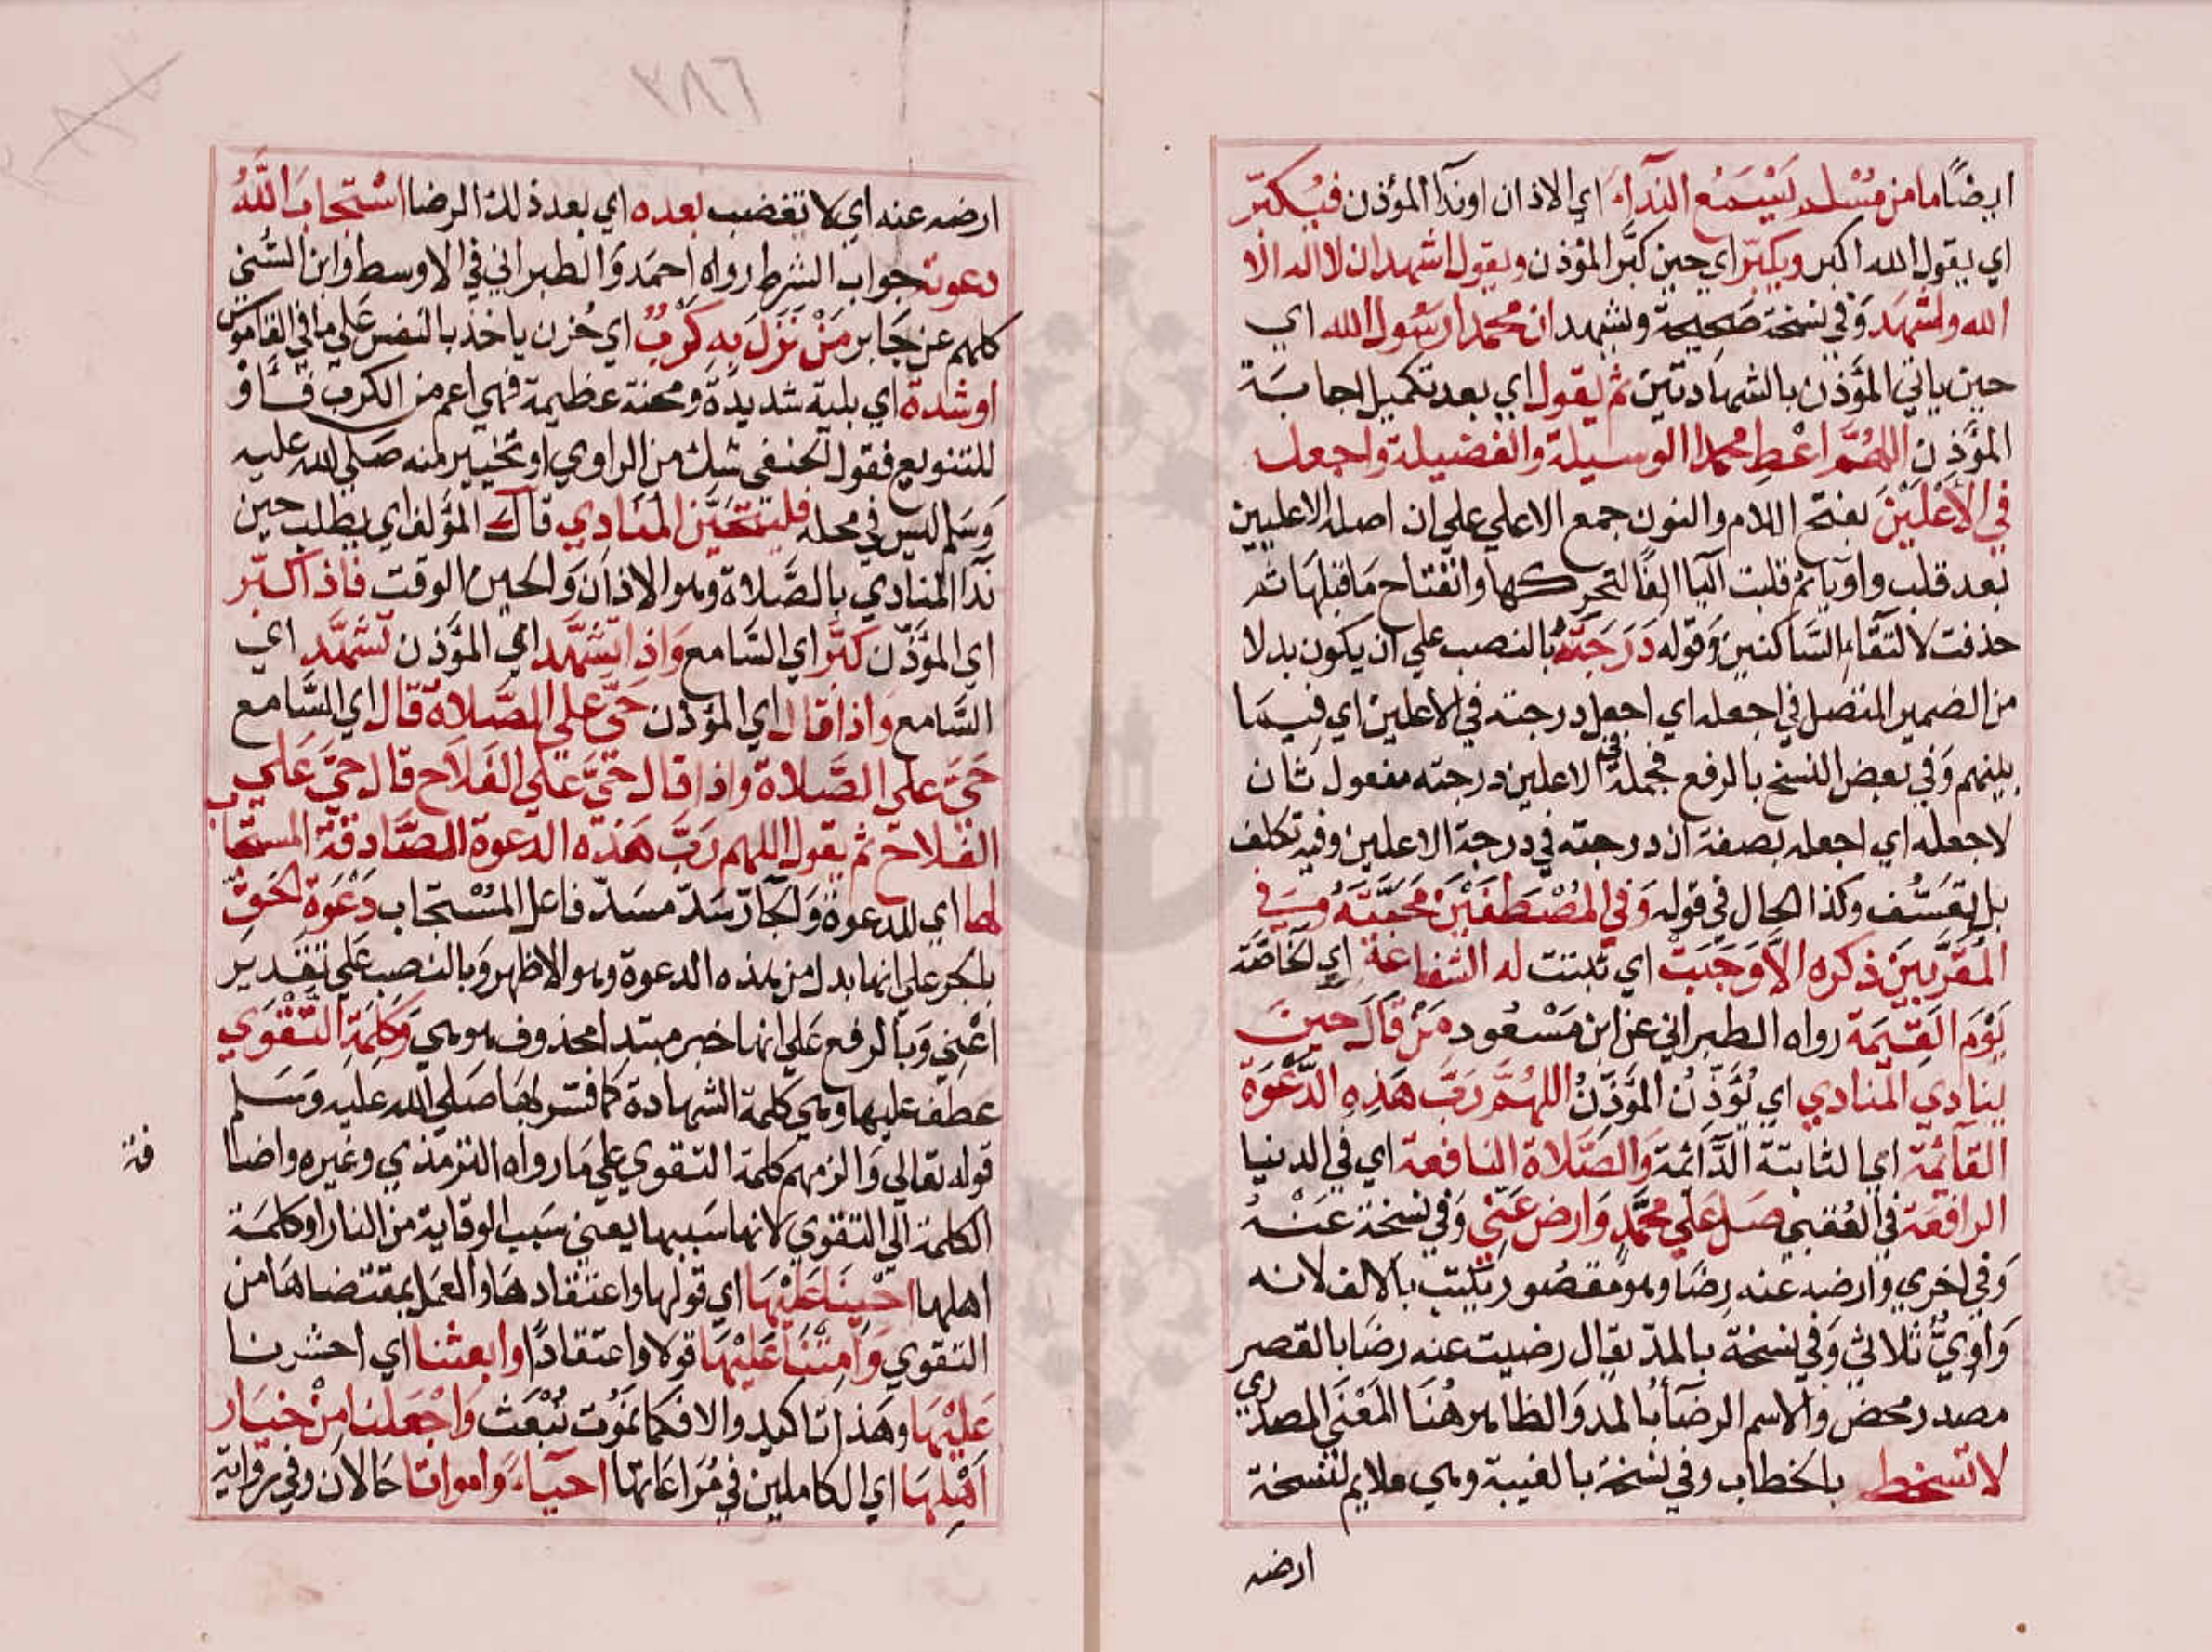 ايضًا ما من مُسْلم يَسْمَعُ النِّدآءَ اي الاذان او ندآ المؤذن فيُكبّر
اي يقول الله اكبر ويكبّر اي حين كبَّر المؤذن ويقول اشهد ان لا اله الا
الله ولشهَد وَفي نسخة صَحيحة ويشهد ان محمدا رسُول الله اي
حين ياتي المؤذن بالشهادتين ثم يقول اي بعد تكميل اجابَة
المؤذن اللهُمَّ اعْطِ محمدا الوسيلة والفضيلة واجعله
في الاَعْلَيْنَ بفتح اللام والنون جمع الاعلي علي ان اصله الاعليين
بعد قلب واوه يا ثم قلبت اليا الفًا لتحركها وانفتاح مَا قبلهَا ثم
حذفت لالتقاء السَّاكنين وَقوله دَرَجَتَهُ بالنصب علي ان يكون بدلا
من الضمير المتصل في اجعله اي اجعل درجته في الاعلين اي فيمَا
بينهم وَفي بعض النسخ بالرفع فجملة في الاعلين درجته مفعول ثان
لاجعله اي اجعله بصفة ان درجته في درجة الاعلين وفيه تكلف
بل تعَسُّف وكذا الحال في قوله وَفي المُصْطَفَيْنَ مَحَبَّتَهُ وَفي
المُقَرَّبينَ ذكره الاَّ وَجَبَتْ اي ثبتت له الشفاعة اي الخاصَّة
يَوْمَ القِيمَة رواه الطبراني عن ابن مَسْعُود مَنْ قَالَ حينَ
ينَادي المنادي اي يُؤذّن المؤذّنُ اللهُمَّ رَبَّ هَذِهِ الدَّعْوَةِ
القآئمة اي الثابتة الدَّائمة وَالصَّلاة النافعة اي في الدنيا
الرافعَة في العُقبي صَل عَلي محمَّدٍ وَارضَ عَنّي وَفي نسخة عَنْهُ
وَفي اخري وارضه عنه رضًا وهو مقصُور يكتب بالالف لانه
وَاويٌّ ثلاثي وَفي نسخة بالمدّ يقال رضيت عنه رضَا بالقصر
مصدر محض والاسم الرضآءُ بالمد وَالظاهر هُنَا المَعْنَي المصدري
لا تسخط بالخطاب وفي نسخة بالغيبة وهي ملايم لنسخة
ارضه
٣٨٦
ارضه عنه اي لا تغضب بعده اي بعد ذلك الرضا اسْتجابَ اللهُ
دعوته جواب الشرط رواه احمَد وَالطبراني في الاوسط وابن السُّني
كلهم عن جَابر مَنْ نَزَلَ بِهِ كَرْبٌ اي حُزن ياخذ بالنفس عَلي ما في القاموس
او شدة اي بلية شديدة ومحنة عظيمة فهي اعم من الكرب فَاَوْ
للتنويع فقول الحنفي شك من الراوي او تخيير منه صَلي الله عليه
وَسَلم ليس في محله فليتحَيَّن المنَادي قالَ المؤلف اي يطلب حين
نَدا المنَادي بالصَّلاة وهو الاذان وَالحين الوقت فاذا كبّر
اي المؤذّن كبَّر اي السَّامع وَاذا تشَهَّد اي المؤذن تشهَّد اي
السَّامع واذا قال اي المؤذن حَيَّ علي الصَّلاة قال اي السَّامع
حَيَّ علي الصَّلاة واذا قال حَيَّ عَلي الفَلاَح قال حَيَّ عَلي
الفلاح ثم يقول اللهم رَبَّ هَذه الدعوة الصَّادقة المستجاب
لها اي للدعوة وَالجار سَدّ مسَدّ فاعل المُسْتجاب دَعْوَةِ الحَقِّ
بالجر علي انها بدل من هذه الدعوة وهو الاظهر وَبالنصب عَلي تقدير
اعْني وَبالرفع عَلي انها خبر مبتدا محذوف هو هي وَكَلِمَةِ التَّقْوَي
عطف عليها وهي كلمة الشهادة كما فسّر بهَا صَلي الله عليه وَسَلم
قوله تعالي وَالزمهم كلمة التقوي علي مَا رواه الترمذي وغيره واضا
فة
الكلمة الي التقوي لانها سَببها يعني سَبب الوقاية من النار او كلمَة
اهلها احْيِنَا عَلَيْهَا اي قولها واعتقادهَا والعمل بمقتضاهَا من
التقوي وَاَمِتْنَا عَلَيْهَا قولا واعتقادًا وابعثنا اي احشرنا
عَلَيْهَا وهَذا تاكيد والا فكما نمُوت نُبْعَث وَاجْعَلْنا مِنْ خيَار
اَهْلِهَا اي الكاملين في مُرَاعَاتها احيآءً وَامواتا حَالان وفي رواية